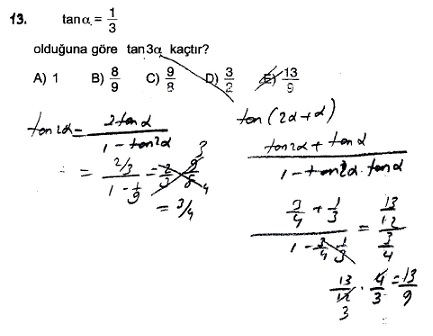 13. tanα = 1/3
olduğuna göre tan3α kaçtır?
A) 1 B) 8/9 C) 9/8 D) 3/2 E) 13/9
tan2α = 2tanα / 1 - tan2α
= 2/3 / 1 - 1/9 = 2/3 · 9/8 3 4
= 3/4
tan(2α+α)
tan2α + tanα / 1 - tan2α · tanα
3/4 + 1/3 / 1 - 3/4 · 1/3 = 13/12 / 3/4
13/12 · 4/3 = 13/9
3